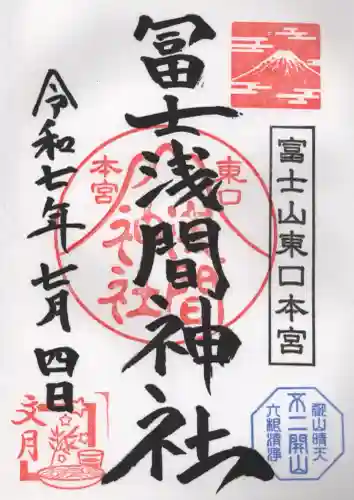 富士山東口本宮
冨士浅間神社
東口
本宮
浅間
神社
令和七年七月四日
文月
不二開山
六根清浄